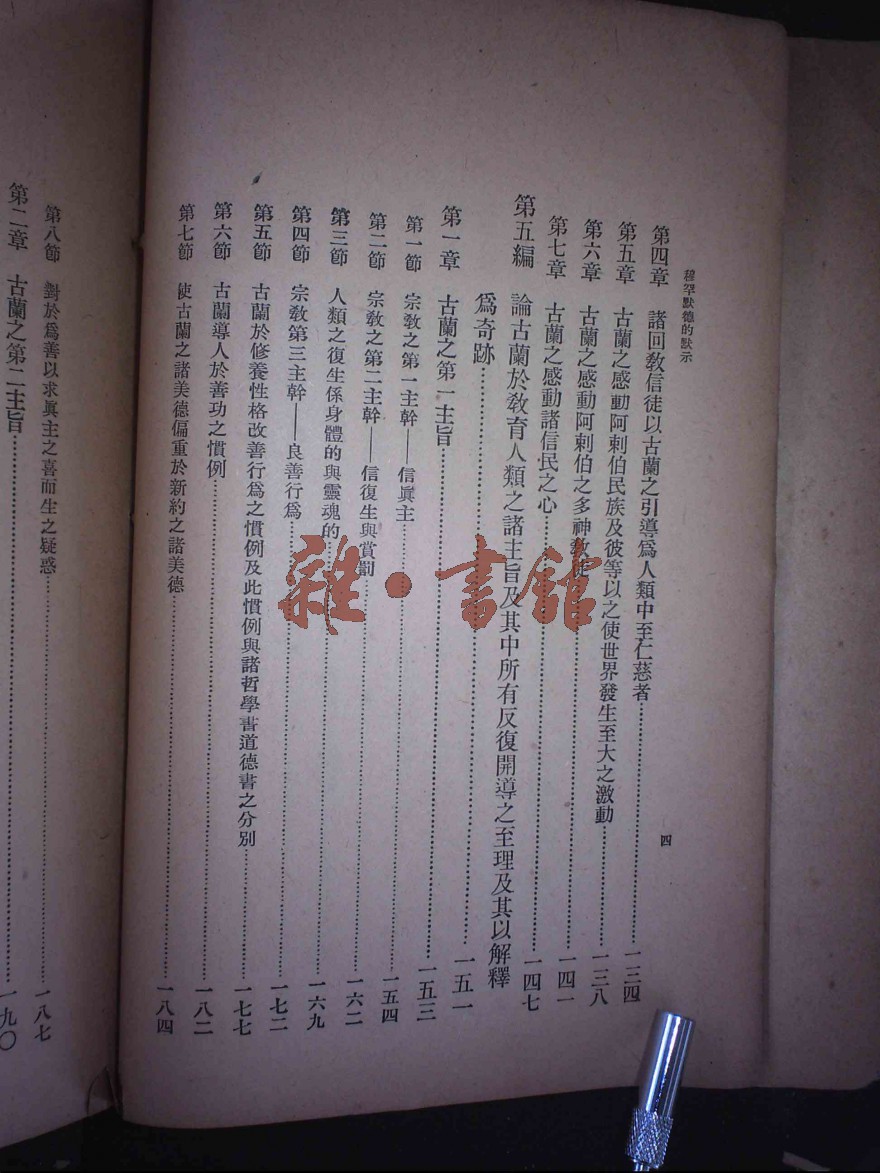 穆罕默德的默示
四
第四章 諸回敎信徒以古蘭之引導爲人類中至仁慈者……一三四
第五章 古蘭之感動阿剌伯民族及彼等以之使世界發生至大之激動……一三八
第六章 古蘭之感動阿剌伯之多神敎徒……一四一
第七章 古蘭之感動諸信民之心……一四七
第五編 論古蘭於敎育人類之諸主旨及其中所有反復開導之至理及其以解釋
爲奇跡……一五一
第一章 古蘭之第一主旨……一五三
第一節 宗敎之第一主幹——信眞主……一五四
第二節 宗敎之第二主幹——信復生與賞罰……一六二
第三節 人類之復生係身體的與靈魂的……一六九
第四節 宗敎第三主幹——良善行爲……一七二
第五節 古蘭於修養性格改善行爲之慣例及此慣例與諸哲學書道德書之分別……一七七
第六節 古蘭導人於善功之慣例……一八二
第七節 使古蘭之諸美德偏重於新約之諸美德……一八四
第八節 對於爲善以求眞主之喜而生之疑惑……一八七
第二章 古蘭之第二主旨……一九〇
雜·書館